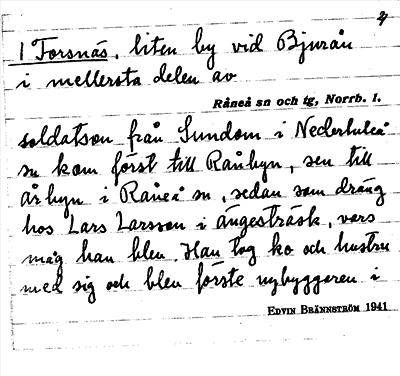 4
1 Forsnäs, liten by vid Bjurån
i mellersta delen av
Råneå sn och tg, Norrb. l.
soldatson från Sundom i Nederluleå
sn kom först till Rånbyn, sen till
årbyn i Råneå sn, sedan som dräng
hos Lars Larsson i ängesträsk, vars
måg han blev. Han tog ko och hustru
med sig och blev förste nybyggaren i
EDVIN BRÄNNSTRÖM 1941